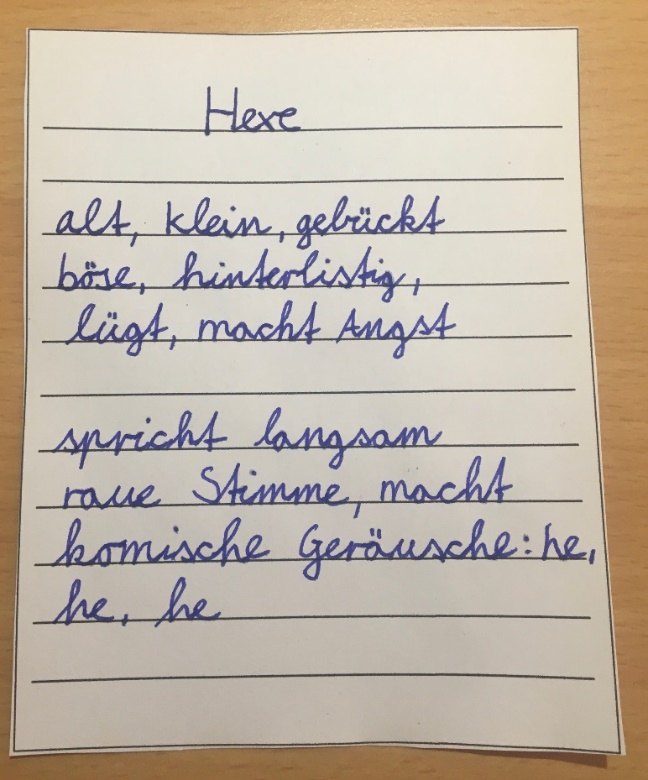 Hexe
alt, klein, gebückt
böse, hinterlistig,
lügt, macht Angst
spricht langsam
raue Stimme, macht
komische Geräusche: he,
he, he